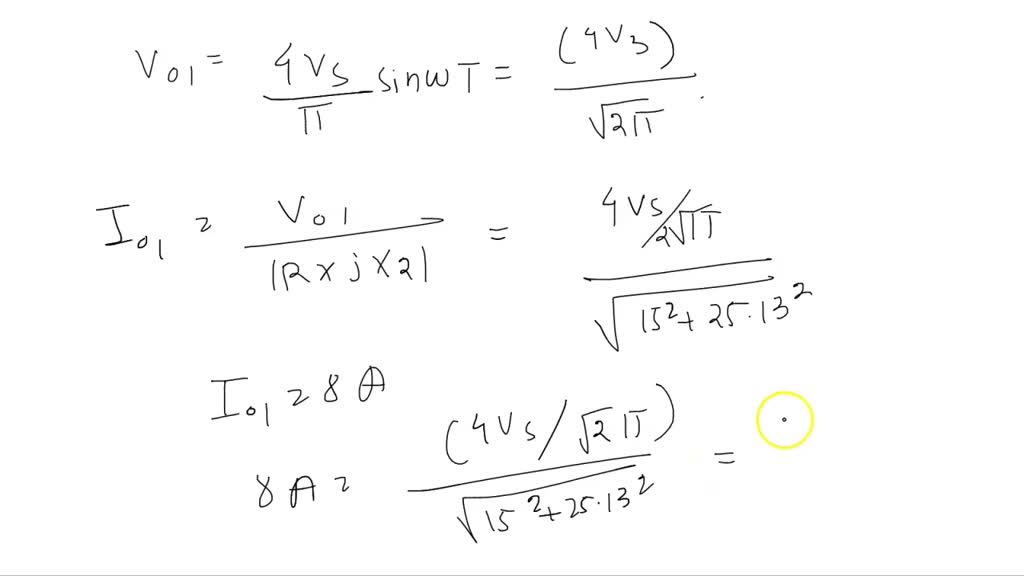 V01 = 4VS/π sinωT = (4V3)/√2π .
I01 = V01/|R×j×2| = (4VS/2√π)/√15²+25.13²
I01 = 8A
8A = (4VS/√2π)/√15²+25.13² =